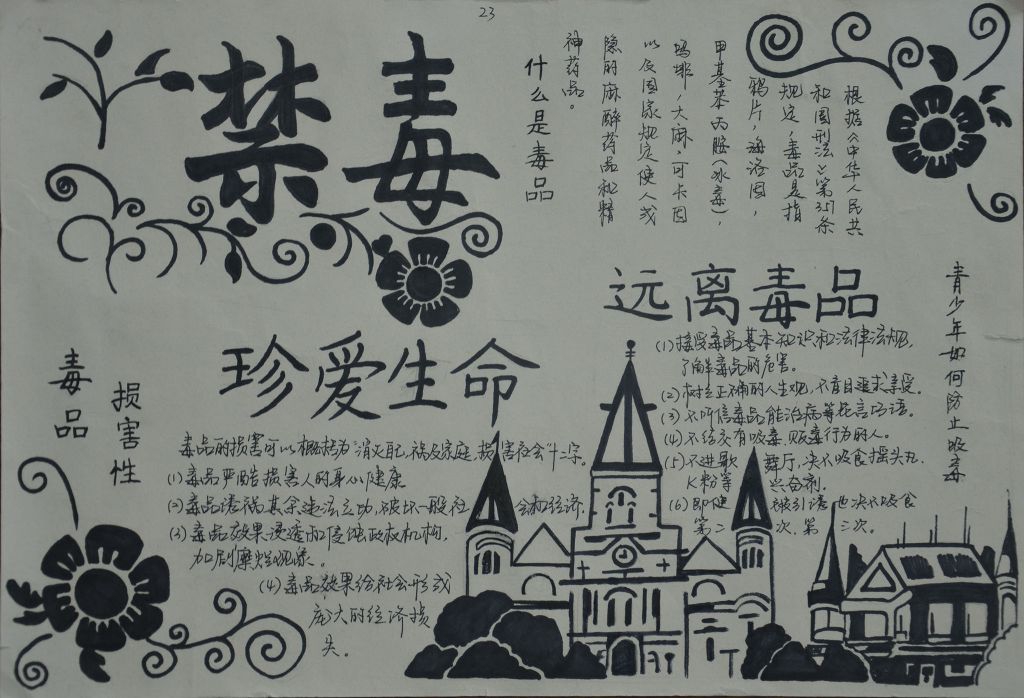 23
禁毒
什么是毒品
根据《中华人民共
和国刑法》第357条
规定，毒品是指
鸦片，海洛因，
甲基苯丙胺（冰毒），
吗啡，大麻，可卡因
以及国家规定使人或
隐的麻醉药品和精
神药品。
远离毒品
青少年如何防止吸毒
(1)接受毒品基本知识和法律法规，
了解毒品的危害。
(2)树立正确的人生观，不盲目追求享受。
(3)不听信毒品能治病等花言巧语。
(4)不结交有吸毒，贩毒行为的人。
(5)不进歌 舞厅，决不吸食摇头丸
K粉等 兴奋剂。
(6)即使 被引诱 也决不吸食
第二 次，第 三次。
珍爱生命
毒品
损害性
毒品的损害可以概括为"消灭自己，祸及家庭，损害社会"十二字。
(1)毒品严酷损害人的身心健康
(2)毒品诱祸其余违法立功，破坏一般社 会和经济
(3)毒品效果浸透和侵蚀政权机构，
加剧糜烂现象。
(4)毒品效果给社会形或
庞大的经济损
失。